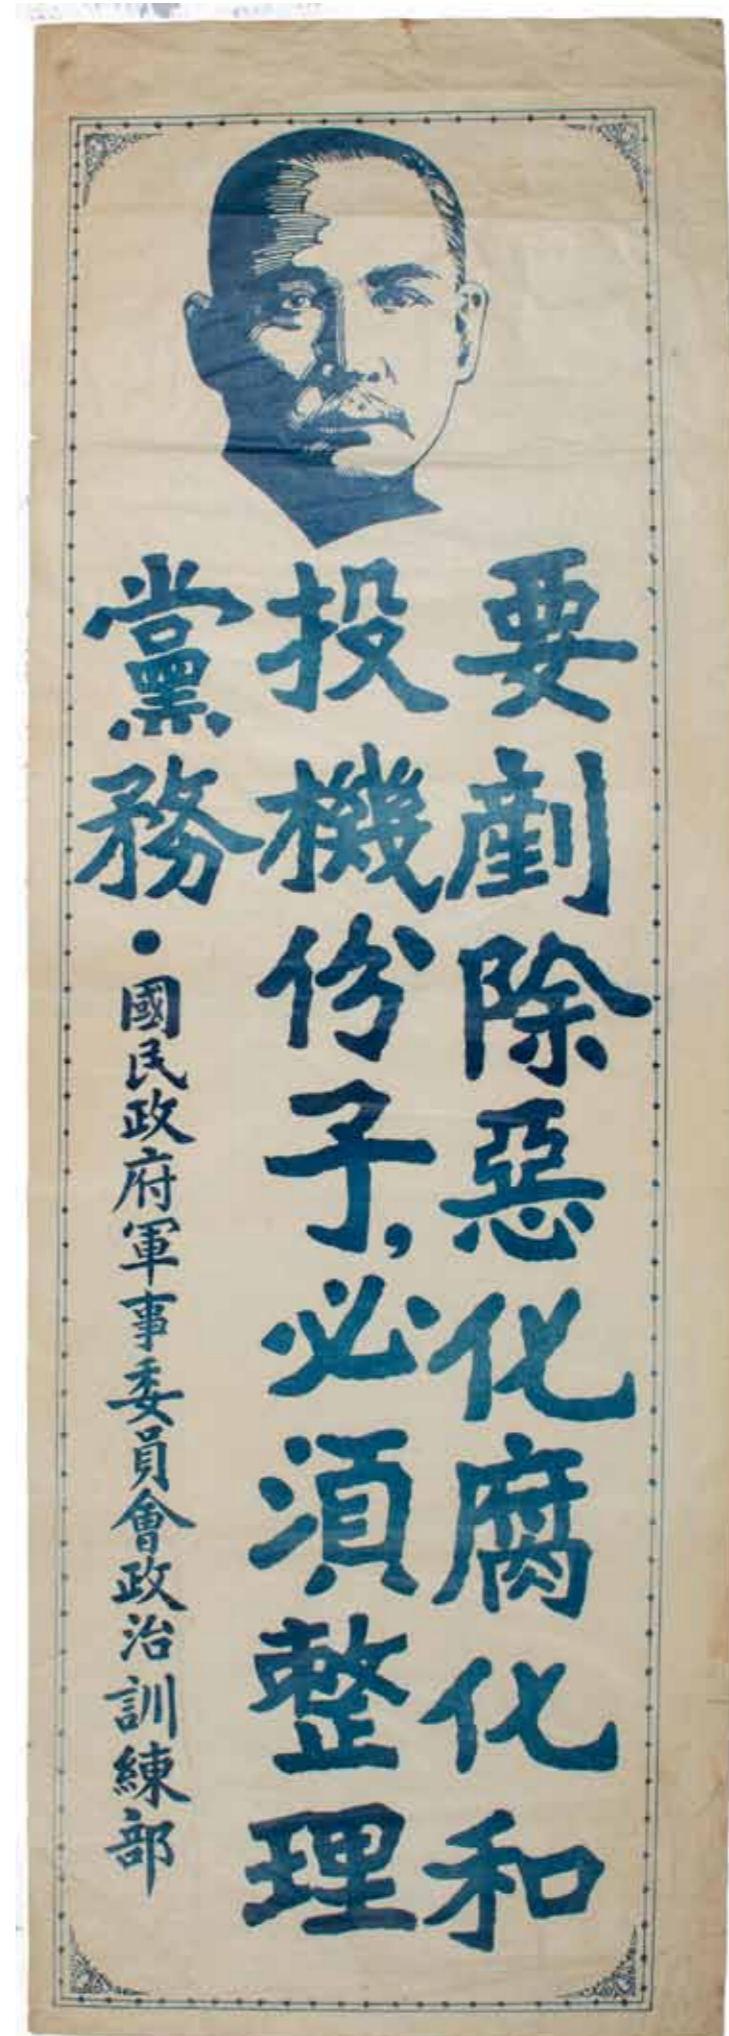 要剷除惡化腐化和
投機份子，必須整理
黨務•國民政府軍事委員會政治訓練部